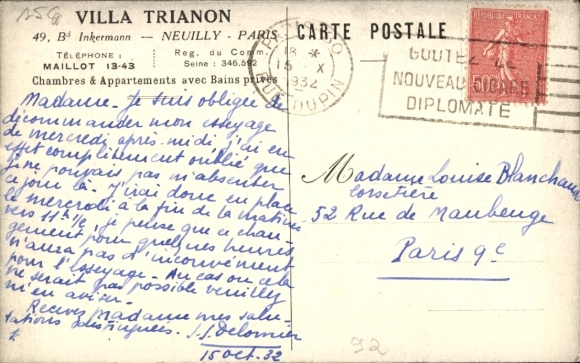 VILLA TRIANON
49, Bd Inkermann — NEUILLY - PARIS
TÉLÉPHONE :
MAILLOT 13-43
Reg. du Comm.
Seine : 346.592
Chambres & Appartements avec Bains privés
Madame. Je suis obligée de
décommander mon essayage
de mercredi après-midi, j'ai en
effet complètement oublié que
je ne pouvais pas m'absenter
ce jour là. J'irai donc en place
le mercredi à la fin de la matinée
vers 11h ½, je pense que ce chan-
gement pour quelques heures
n'aura pas d'inconvénient
pour l'essayage. Au cas ou cela
ne serait pas possible veuillez
m'en aviser.
Recevez madame mes salu-
tations distinguées. J. J. Delormier
15 oct. 32
CARTE POSTALE
18 *
15 - X
1932
RUE DUPIN
GOUTEZ LE
NOUVEAU CIGARE
DIPLOMATE
RF POSTES FRANÇAISE
50c
Madame Louise Blanchard
Corsetière
52 Rue de Maubeuge
Paris 9e
92